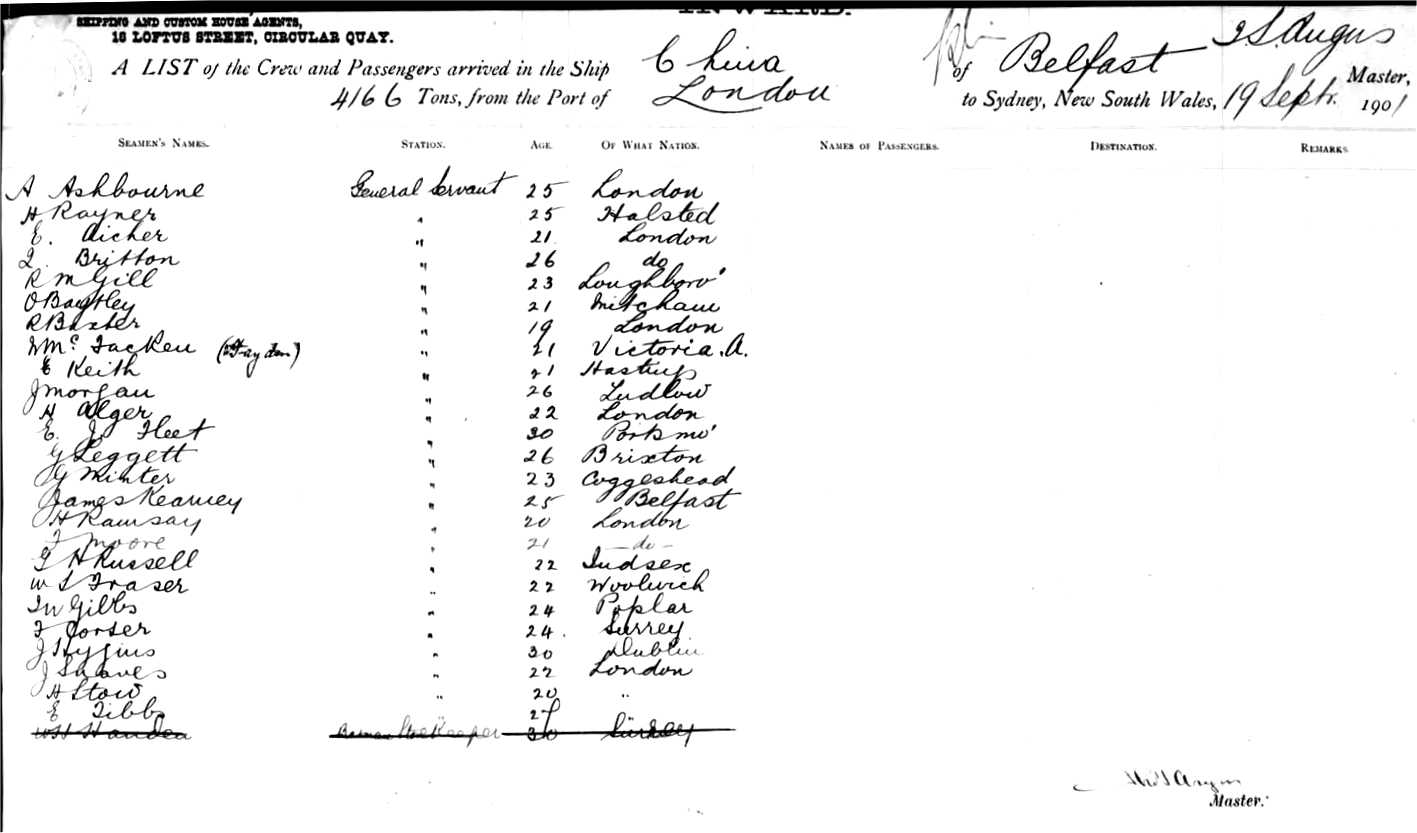 SHIPPING AND CUSTOM HOUSE AGENTS,
16 LOFTUS STREET, CIRCULAR QUAY.
A LIST of the Crew and Passengers arrived in the Ship China of Belfast Angus Master,
4166 Tons, from the Port of London to Sydney, New South Wales, 19 Sept. 1901
SEAMEN'S NAMES. STATION. AGE. OF WHAT NATION. NAMES OF PASSENGERS. DESTINATION. REMARKS
A Ashbourne General Servant 25 London
H Rayner " 25 Halsted
E. Aicher " 21 London
Britton " 26 do
R McGill " 23 Loughboro'
O Bagtley " 21 Mitcham
R Baxter " 19 London
Mc. Tacken " 21 Victoria. A.
E Keith " 21 Hastings
J Morgan " 26 Ludlow
H Alger " 22 London
E. J. Fleet " 30 Portsmo'
G Leggett " 26 Brixton
G Minter " 23 Coggeshead
James Kearney " 25 Belfast
H Ramsay " 20 London
F Moore " 21 - do -
G H Russell " 22
W S Fraser " 22 Woolwich
J W Gibbs " 24 Poplar
F Corser " 24. Surrey
J Hygins " 30 Dublin
J Shaves " 22 London
H Stow " 20 "
E Tibbs 27
W H Storekeeper 30
Master.